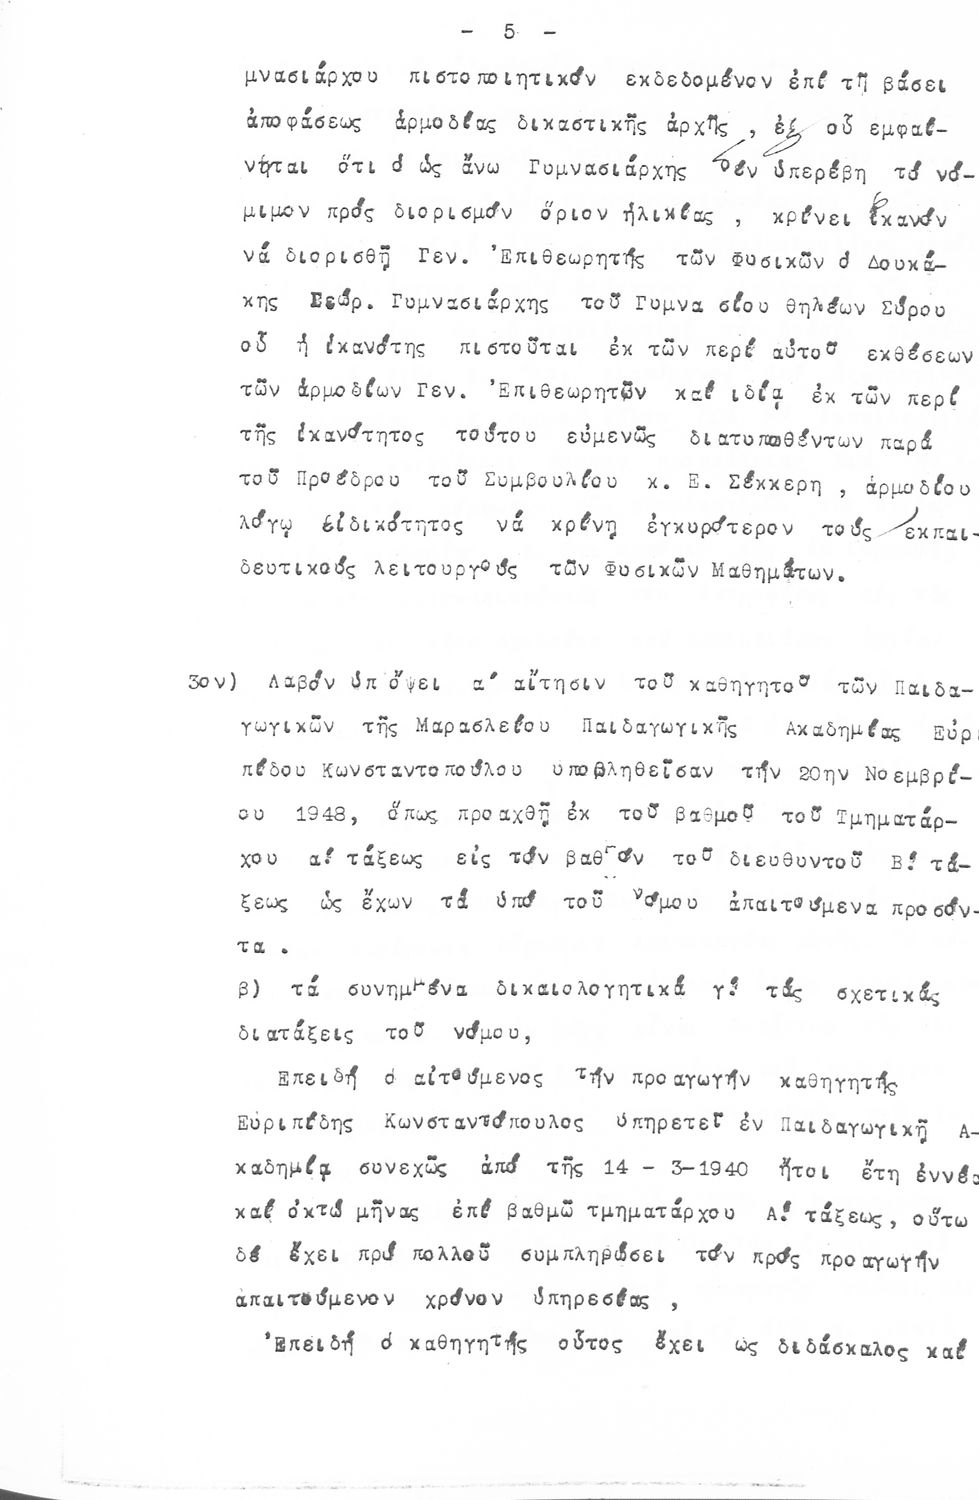 - 5 -
μνασιάρχου πιστοποιητικόν εκδεδομένον ἐπί τῇ βάσει
ἀποφάσεως ἁρμοδίας δικαστικῆς ἀρχῆς , ἐξ οὗ εμφαί-
νηται ὅτι ὁ ὡς ἄνω Γυμνασιάρχης δέν ὑπερέβη τό νό-
μιμον πρός διορισμόν ὅριον ἡλικίας , κρίνει ἱκανόν
νά διορισθῇ Γεν. Ἐπιθεωρητής τῶν Φυσικῶν ὁ Δουκά-
κης Γεώρ. Γυμνασιάρχης τοῦ Γυμνασίου θηλέων Σύρου
οὗ ἡ ἱκανότης πιστοῦται ἐκ τῶν περί αὐτοῦ εκθέσεων
τῶν ἁρμοδίων Γεν. Ἐπιθεωρητῶν καί ιδίᾳ ἐκ τῶν περί
τῆς ἱκανότητος τούτου εὐμενῶς διατυπωθέντων παρά
τοῦ Προέδρου τοῦ Συμβουλίου κ. Ε. Σέκκερη , ἁρμοδίου
λόγῳ εἰδικότητος νά κρίνῃ ἐγκυρότερον τούς εκπαι-
δευτικούς λειτουργούς τῶν Φυσικῶν Μαθημάτων.
3ον) Λαβόν ὑπ ὄψει α' αἴτησιν τοῦ καθηγητοῦ τῶν Παιδα-
γωγικῶν τῆς Μαρασλείου Παιδαγωγικῆς Ακαδημίας Εὐρι
πίδου Κωνσταντοπούλου υποβληθεῖσαν τήν 20ην Νοεμβρί-
ου 1948, ὅπως προαχθῇ ἐκ τοῦ βαθμοῦ τοῦ Τμηματάρ-
χου α! τάξεως εἰς τόν βαθμόν τοῦ διευθυντοῦ Β! τά-
ξεως ὡς ἔχων τά ὑπό τοῦ νόμου ἀπαιτούμενα προσόν-
τα .
β) τά συνημμένα δικαιολογητικά γ! τάς σχετικάς
διατάξεις τοῦ νόμου,
Επειδή ὁ αἰτούμενος τήν προαγωγήν καθηγητής
Εὐριπίδης Κωνσταντόπουλος ὑπηρετεῖ ἐν Παιδαγωγικῇ Α-
καδημίᾳ συνεχῶς ἀπό τῆς 14 - 3-1940 ἤτοι ἔτη ἐννέα
καί ὀκτώ μῆνας ἐπί βαθμῶ τμηματάρχου Α! τάξεως, οὕτω
δέ ἔχει πρό πολλοῦ συμπληρώσει τόν πρός προαγωγήν
απαιτούμενον χρόνον ὑπηρεσίας ,
Ἐπειδή ὁ καθηγητής οὗτος ἔχει ως διδάσκαλος καί